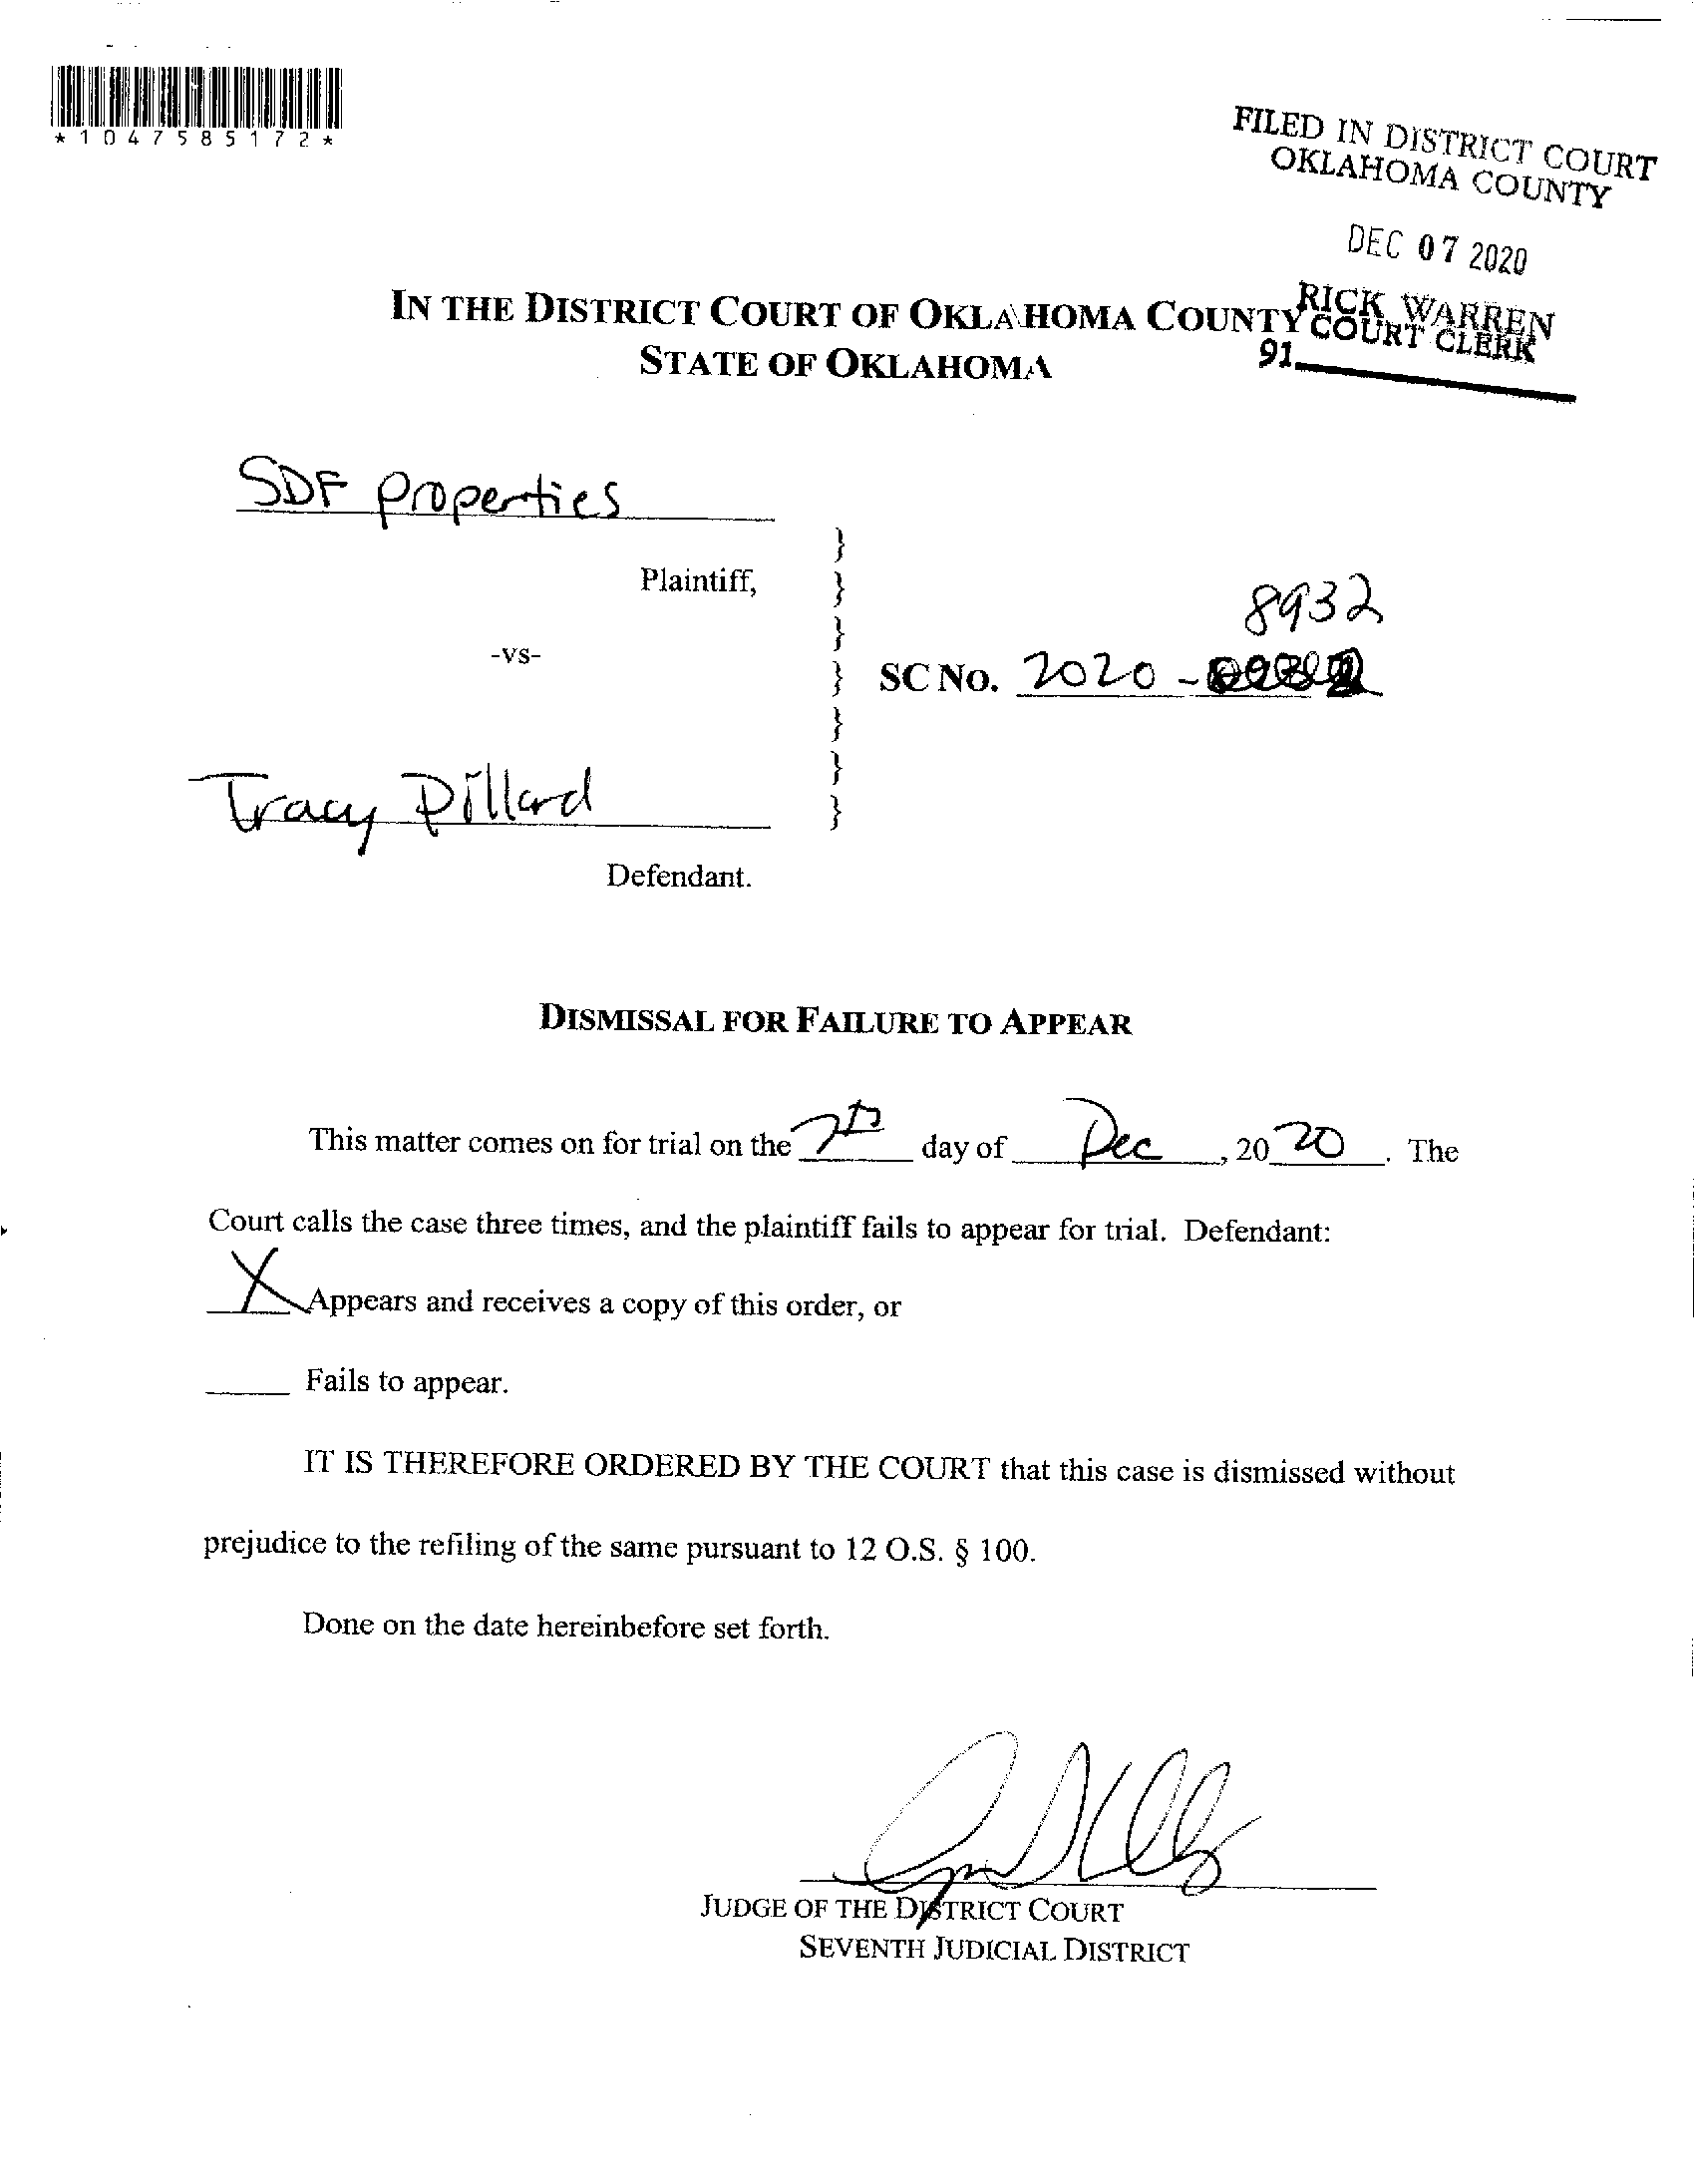 *1047585172*
FILED IN DISTRICT COURT
OKLAHOMA COUNTY
DEC 07 2020
RICK WARREN
COURT CLERK
91
IN THE DISTRICT COURT OF OKLAHOMA COUNTY
STATE OF OKLAHOMA
SDF properties
Plaintiff,
-vs-
8932
SC No. 2020 -
Tracy Dillard
Defendant.
DISMISSAL FOR FAILURE TO APPEAR
This matter comes on for trial on the 7th day of Dec, 2020. The
Court calls the case three times, and the plaintiff fails to appear for trial. Defendant:
X Appears and receives a copy of this order, or
Fails to appear.
IT IS THEREFORE ORDERED BY THE COURT that this case is dismissed without
prejudice to the refiling of the same pursuant to 12 O.S. § 100.
Done on the date hereinbefore set forth.
JUDGE OF THE DISTRICT COURT
SEVENTH JUDICIAL DISTRICT